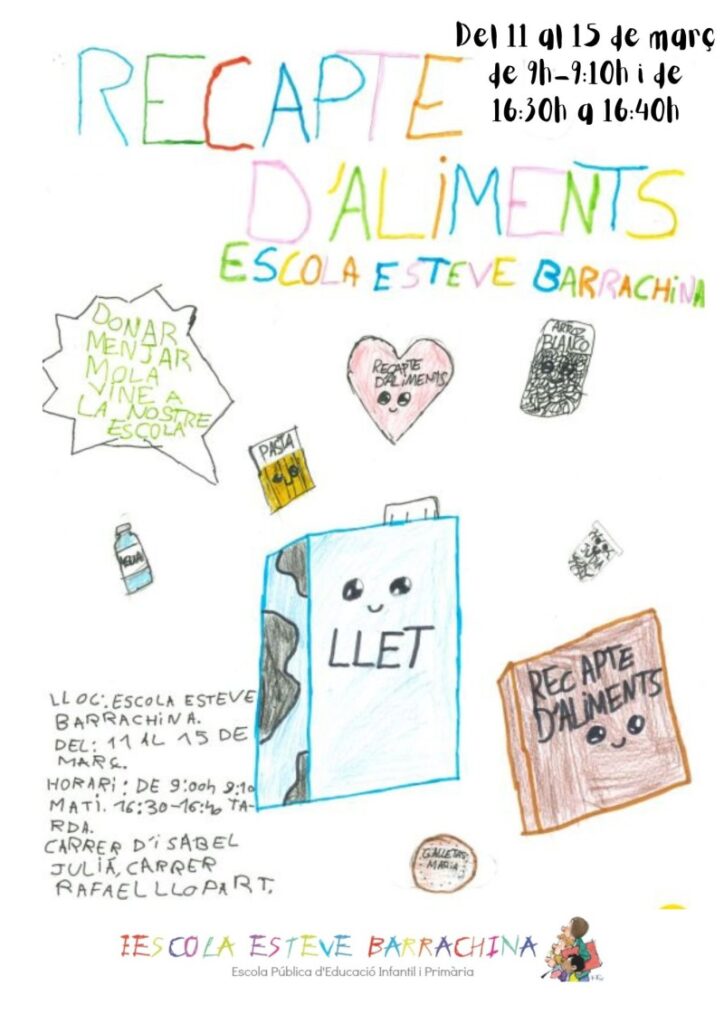 Del 11 al 15 de març
de 9h-9:10h i de
16:30h a 16:40h
RECAPTE
D'ALiMENTS
ESCOLA ESTEVE BARRACHiNA
DONAR
MENJAR
MOLA
VINE A
LA NOSTRE
ESCOLA
RECAPTE
D'ALiMENTS
ARROZ
BLANCO
PASTA
AGUA
LLET
RECAPTE
D'ALiMENTS
LLOC: ESCOLA ESTEVE
BARRACHINA.
DEL: 11 AL 15 DE
MARÇ.
HORARI: DE 9:00h 9:10
MATI. 16:30-16:40 TA-
RDA.
CARRER D'ISABEL
JULIÀ, CARRER
RAFAEL LLOPART.
GALLETAS
MARIA
ESCOLA ESTEVE BARRACHINA
Escola Pública d'Educació Infantil i Primària